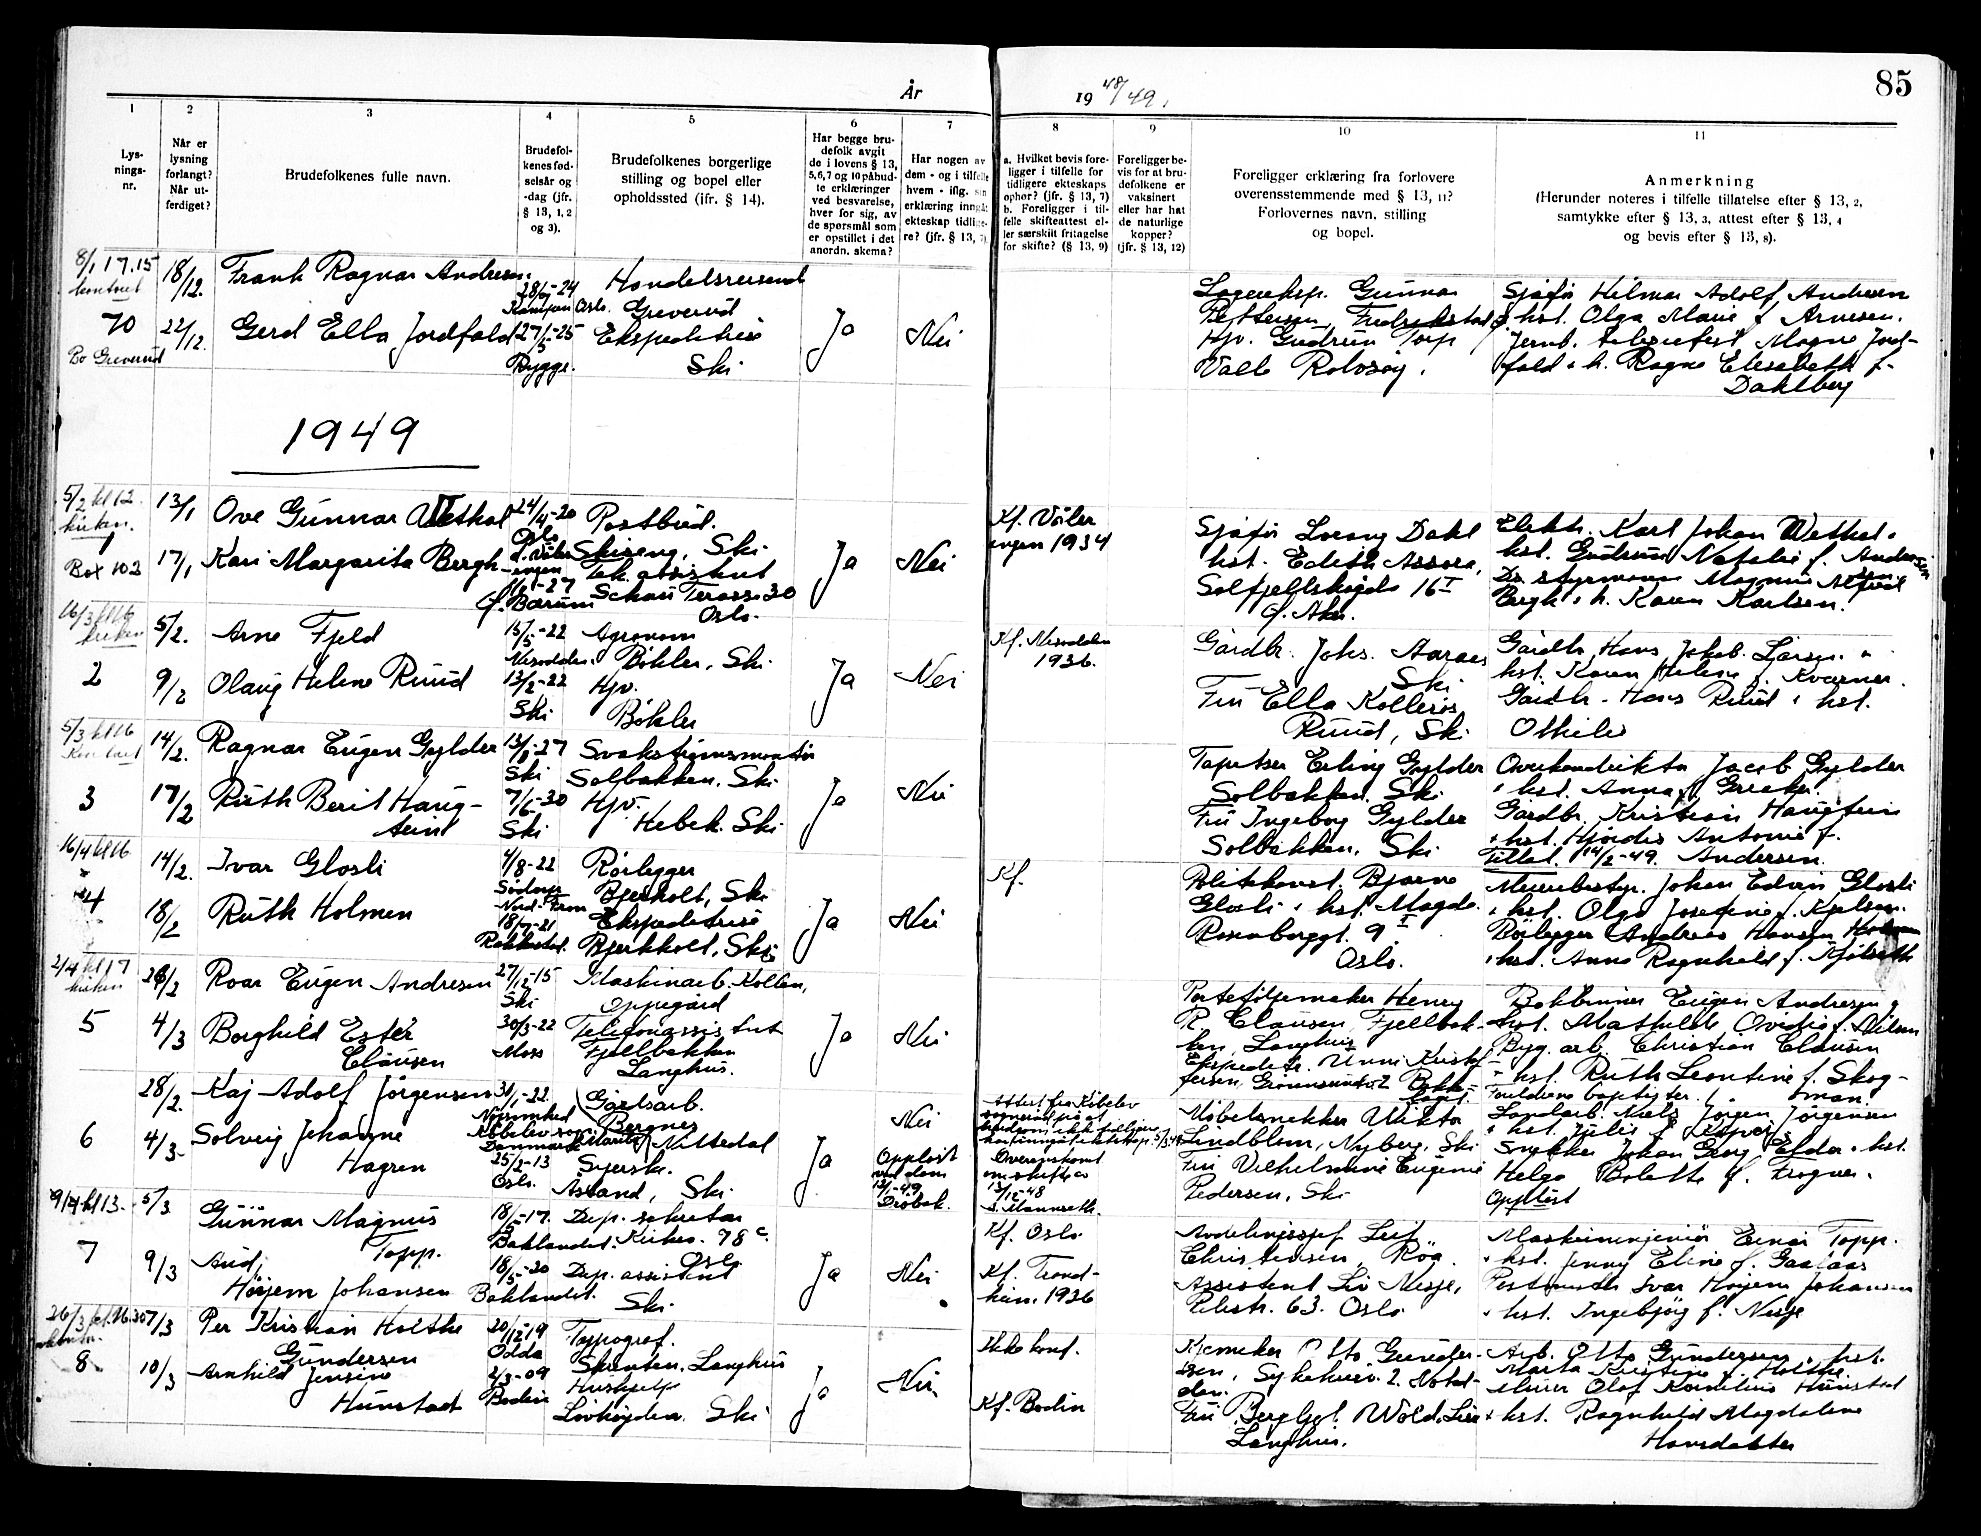 85
År 19 48/49.
1
2
3
4
5
6
7
8
9
10
11
Lys-
nings-
nr.
Når er
lysning
forlangt?
Når ut-
ferdiget?
Brudefolkenes fulle navn.
Brudefol-
kenes fød-
selsår og
-dag (jfr.
§ 13, 1, 2
og 3).
Brudefolkenes borgerlige
stilling og bopel eller
opholdssted (jfr. § 14).
Har begge bru-
defolk avgit
de i lovens § 13,
5, 6, 7 og 10 påbud-
te erklæringer
ved besvarelse,
hver for sig, av
de spørsmål som
er opstillet i det
anordn. skema?
Har nogen av
dem - og i tilfelle
hvem - iflg. sin
erklæring inngåt
ekteskap tidlige-
re? (jfr. § 13, 7)
a. Hvilket bevis fore-
ligger i tilfelle for
tidligere ekteskaps
ophør? (jfr. § 13, 7)
b. Foreligger i til-
felle skifteattest el-
ler særskilt fritagelse
for skifte? (§ 13, 9)
Foreligger be-
vis for at bru-
defolkene er
vaksinert
eller har hat
de naturlige
kopper?
(jfr. § 13, 12)
Foreligger erklæring fra forlovere
overensstemmende med § 13, 11?
Forlovernes navn, stilling
og bopel.
Anmerkning
(Herunder noteres i tilfelle tillatelse efter § 13, 2,
samtykke efter § 13, 3, attest efter § 13, 4
og bevis efter § 13, 8).
8/1 17.15
kontoret
70
Bo Greverud
18/12.
22/12.
Frank Ragnar Andresen.
Gerd Ella Jordfald
28/9-24
Kampen Oslo.
27/5-25
Rygge.
Handelsreisende
Greverud
Ekspeditrise
Ski
Ja
Nei
Lagereksp. Gunnar
Pettersen, Fredrikstad
Hjv. Gudrun Torp
Valle Rolvsøy.
Sjåfør Hilmar Adolf Andresen
& hst. Olga Marie f. Arnesen.
Jernb. telegrafist Magne Jord-
fald & h. Ragna Elisabeth f.
Dahlberg
1949
5/2 kl 12.
kirken.
1
Box 102
13/1
17/1
Ove Gunnar Wethal
Kari Margarita Bergh
24/4-20
Oslo
d. Våler-
engen
-27
f. Bærum
Postbud.
Skiveng, Ski
Tek. assistent
Schous Terasse 30
Oslo.
Ja
Nei
Kf. Våler
engen 1934
Sjåfør Lorang Dahl
hst. Edith Assora,
Solfjellshøgda 16 I
Ø. Aker.
Elektr. Karl Johan Wethal &
hst. Gudrun Natalie f. Andersen
Styrmann Magnus Alfred
Bergh & h. Karen Karlsen.
16/3 kl 16
kirken
2
5/2.
9/2
Arne Fjeld
Olaug Helene Ruud
15/5-22
Nesodden.
13/2-22
Ski
Agronom
Bøhler, Ski.
Hjv.
Bøhler
Ja
Nei
Kf. Nesodden
1936.
Gårdbr. Johs. Aaraas
Ski
Fru Ella Kollerøs
Ruud, Ski
Gårdbr. Hans Jakob Larsen &
hst. Karen Helene f. Kværner.
Gårdbr. Hans Ruud & hst.
Othilie
5/3 kl 16
Kontoret
3
14/2.
17/2
Ragnar Eugen Gylder
Ruth Berit Haug-
stein
13/8-27
Ski
7/6-30
Ski
Svakstrømsmontør
Solbakken. Ski
Hjv.
Hebek. Ski
Ja
Nei
Tapetser Erling Gylder
Solbakken. Ski
Fru Ingeborg Gylder
Solbakken, Ski
Overkonduktør Jacob Gylder
& hst. Anna f. Grecker
Gårdbr. Kristian Haugstein
& hst. Hjørdis Antonie f.
Tillat. 14/2-49. Andersen.
16/4 kl 16
4
14/2.
18/2
Ivar Glosli
Ruth Holmen
4/8-22
Sødorp
Nord-Fron
18/9-21
Rakkestad.
Rørlegger
Bjerkholt, Ski
Ekspeditrise
Bjerkholt, Ski
Ja
Nei
Kf.
Politikonst. Bjarne
Glosli & hst. Magda.
Rosenborggt. 9 I
Oslo.
Meieribestyr. Johan Edvin Glosli
& hst. Olga Josefine f. Kjelsen.
Rørlegger Andreas Hansen Holmen
& hst. Anna Ragnhild f. Kjølseth
2/4 kl 17
kirken
5
26/2
4/3
Roar Eugen Andresen
Borghild Ester
Clausen
27/12-15
Ski
30/3-22
Moss
Maskinarb. Kolben,
Oppegård
Telefonassistent
Fjellbakken
Langhus.
Ja
Nei
Porteføljemaker Henry
R. Clausen, Fjellbak-
ken, Langhus
Ekspeditr. Unni Kristof-
fersen, Grønsundvn. 2
Bokbinner Eugen Andresen &
hst. Mathilde Ovidia f. Nilsen
Byg.arb. Christian Clausen
& hst. Ruth Leontine f. Skog-
man.
Foreldrene baptister.
6
28/2.
4/3-
Kaj Adolf Jørgensen
Solveig Johanne
Hagren
31/1-22.
København
Danmark
25/2-13
Oslo.
Gårdsarb.
Bergnes
Nittedal
Syerske.
Åsland, Ski
Ja
Nei
Oppløst
ved dom
13/1-49.
Drøbak.
Overenskomst
om skifte
13/12-48
Møbelsnekker Viktor
Lindblom, Nyberg, Ski
Fru Vilhelmine Eugenie
Pedersen, Ski
Landarb. Niels Jørgen Jørgensen
& hst. Julie f. Jesper
Snekker Johan Georg Elder & hst.
Helga Bolette f. Frogner.
Opplest
9/4 kl 13.
7
5/3
9/3
Gunnar Magnus
Topp.
Aud,
Hørjem Johansen
18/5-17.
Baklandet.
18/5-20
Baklandet.
Dep. sekretær
Kirkev. 78 c.
Oslo
Dep. assistent
Ski.
Ja
Nei
Kf. Oslo
Kf. Trond-
heim. 1936
Avdelingssjef Leif
Christensen, Roa
Assistent Liv Nesje,
Pilestr. 63. Oslo
Maskiningeniør Einar Topp.
& hst. Jenny Eline f. Gaalaas
Postmester Ivar Hørjem Johansen
& hst. Ingebjørg f. Nesje
26/3 kl. 16.30
8
7/3
10/3
Per Kristian Holthe
Gundersen
Arnhild Jensine
Hunstad
20/12-19
Odda
2/3-09
Bodin
Typograf.
Skoenten. Langhus
Hushjelp
Løvhøgden. Ski
Ja
Nei
Ikke konf.
Kf. Bodin
Kjemiker Otto Gunder-
sen, Sykehusv. 2. Notod-
den.
Fru Bergljot Wold,
Langhus.
Arb. Otto Gundersen & hst.
Marta Kristine f. Holthe
Murer Olaf Kornelius Hunstad
& hst. Ragnhild Magdalena
Hansdatter